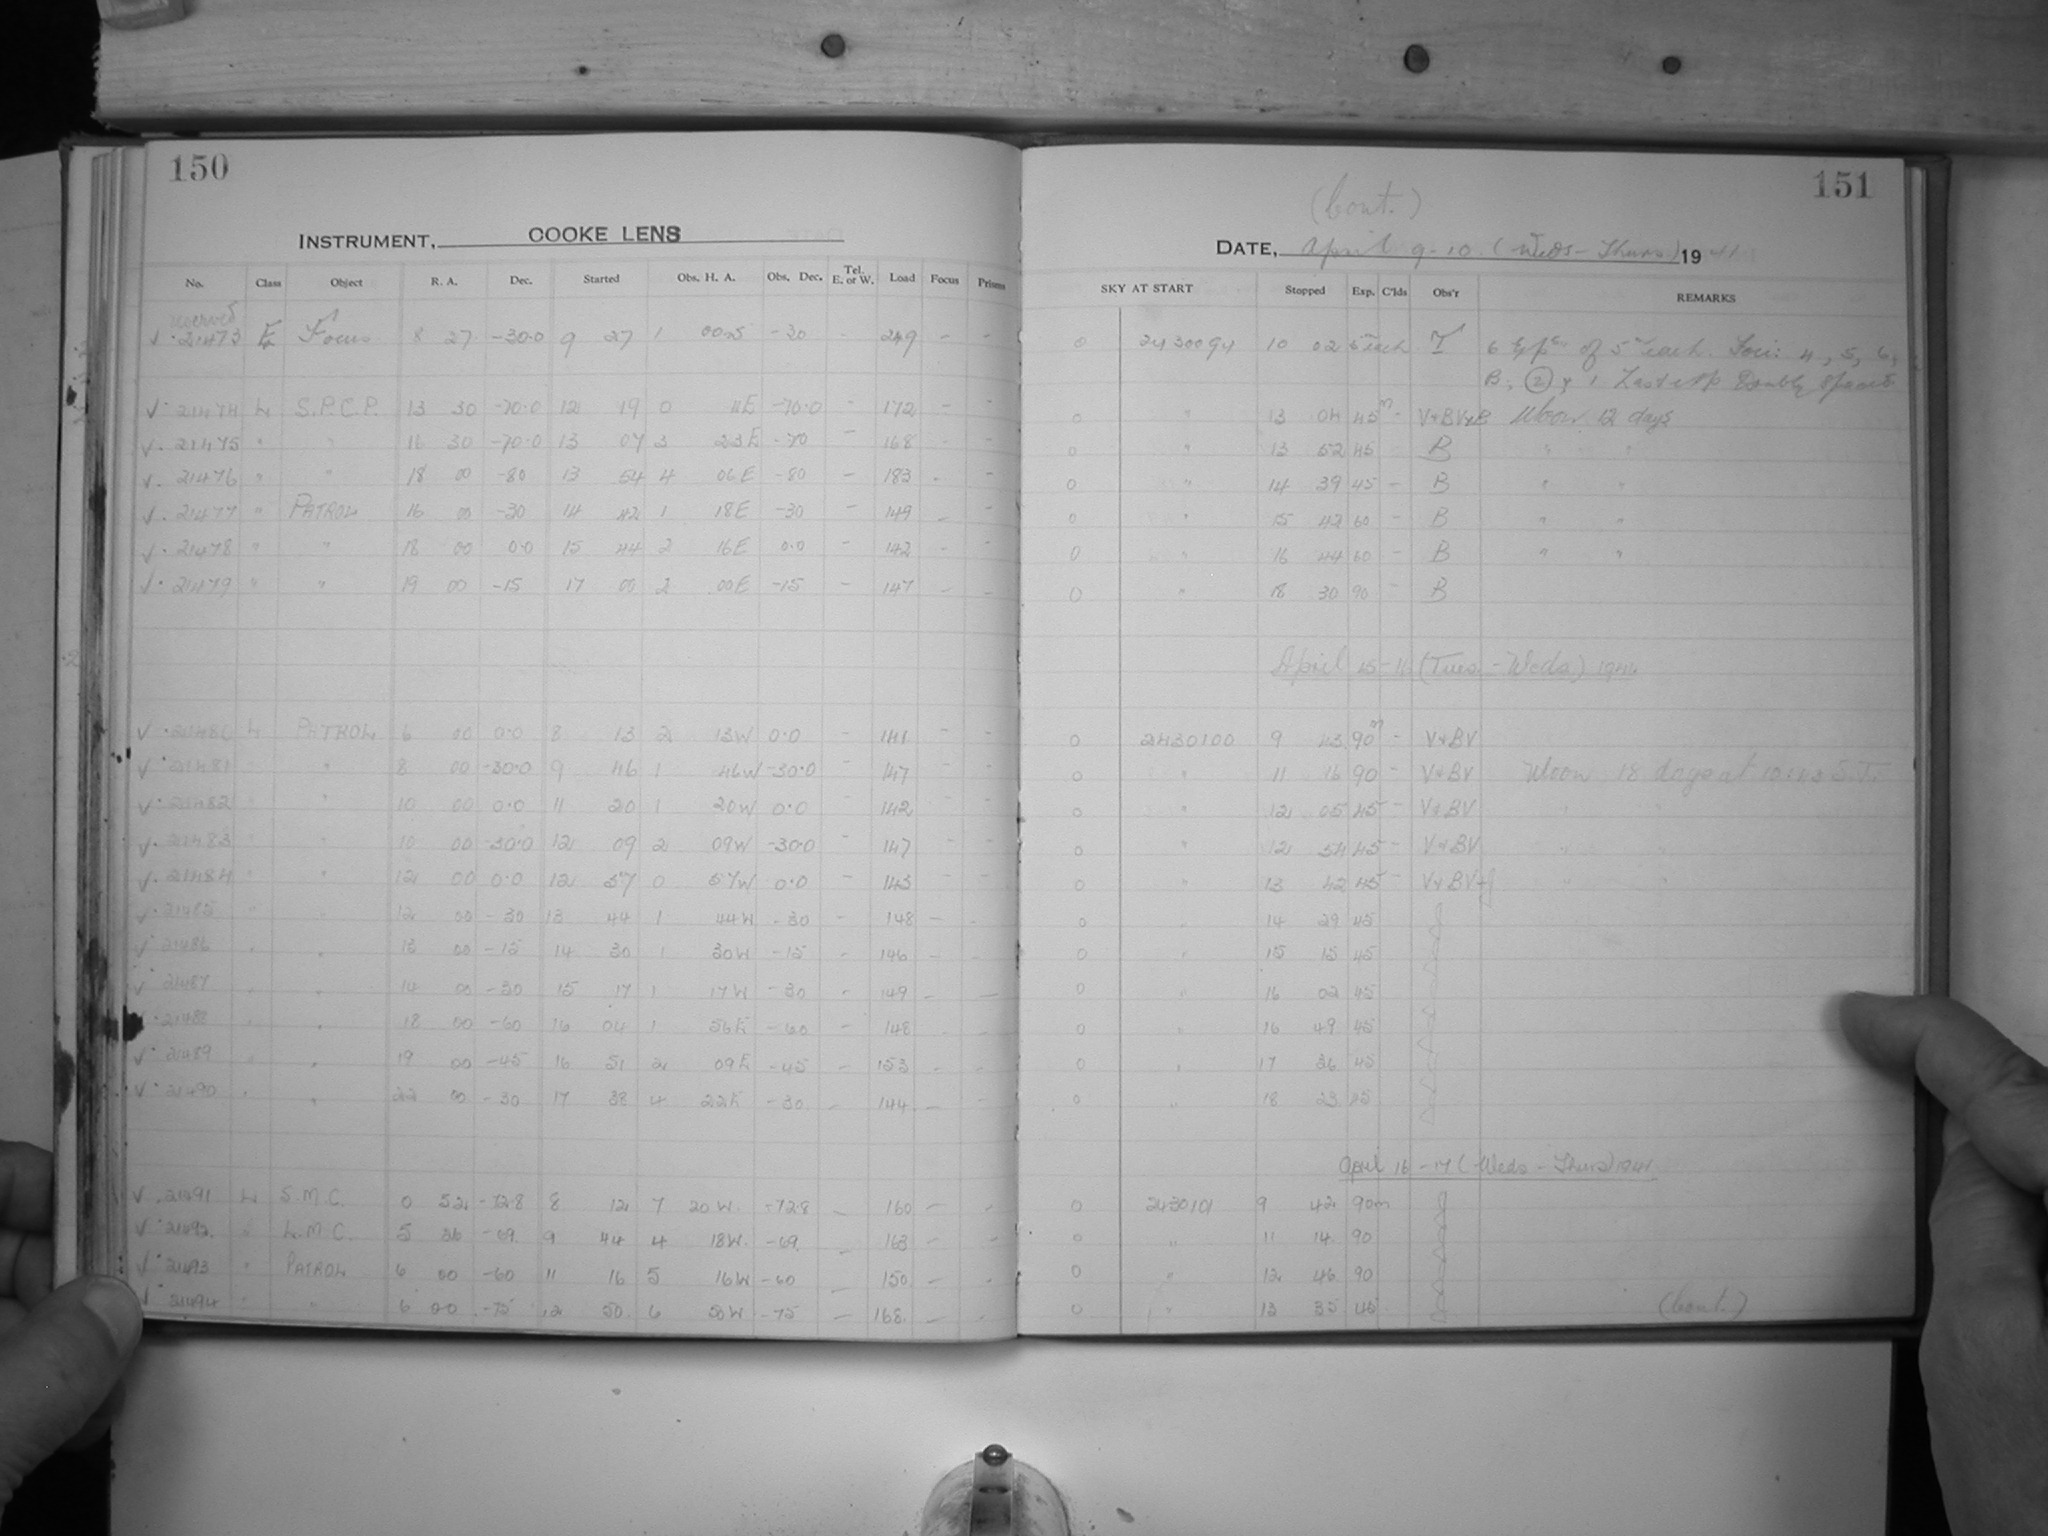 150
INSTRUMENT, COOKE LENS
No. Class Object R. A. Dec. Started Obs. H. A. Obs. Dec. Tel. E. or W. Load Focus Prisms
√ 21473 Focus 8 27 -30.0 9 27 1 00 -30 - - -
√ 21474 L S.P.C.P. 13 30 -70.0 12 19 0 11E -70.0 - 172 - -
√ 21475 " " 16 30 -70.0 13 07 3 23E -70 - 168 - -
√ 21476 " " 18 00 -80 13 54 4 06E -80 - 183 - -
√ 21477 " PATROL 16 00 -30 14 42 1 18E -30 - 149 - -
√ 21478 " " 18 00 0.0 15 44 2 16E 0.0 - 142 - -
√ 21479 " " 19 00 -15 17 00 2 00E -15 - 147 - -
√ 21480 L PATROL 6 00 0.0 8 13 2 13W 0.0 - 141 - -
√ 21481 " " 8 00 -30.0 9 46 1 46W -30.0 - 147 - -
√ 21482 " " 10 00 0.0 11 20 1 20W 0.0 - 142 - -
√ 21483 " " 10 00 -30.0 12 09 2 09W -30.0 - 147 - -
√ 21484 " " 12 00 0.0 12 57 0 57W 0.0 - 143 - -
√ 21485 " " 12 00 -30 13 44 1 44W -30 - 148 - -
√ 21486 " " 13 00 -15 14 30 1 30W -15 - 146 - -
√ 21487 " " 14 00 -30 15 17 1 17W -30 - 149 - -
√ 21488 " " 18 00 -60 16 04 1 56E -60 - 148 - -
√ 21489 " " 19 00 -45 16 51 2 09E -45 - 153 - -
√ 21490 " " 22 00 -30 17 38 4 22E -30 - 144 - -
√ 21491 L S.M.C. 0 52 -72.8 8 12 7 20W -72.8 - 160 - -
√ 21492 " L.M.C. 5 26 -69 9 44 4 18W -69 - 163 - -
√ 21493 " PATROL 6 00 -60 11 16 5 16W -60 - 150 - -
√ 21494 " " 6 00 -75 12 50 6 50W -75 - 168 - -
151
(Cont.)
DATE, April 9-10 (Weds-Thurs) 1941
SKY AT START Stopped Exp. C'lds Obs'r REMARKS
0 2430094 10 02 5m each 6 Exps of 5m each. Foci: 4, 5, 6,
B, (2) & 1 Last exp Doubly spaced
0 " 13 04 45m - V+BV+B Moon 12 days
0 " 13 52 45 B " "
0 " 14 39 45 - B " "
0 " 15 42 60 - B " "
0 " 16 44 60 - B " "
0 " 18 30 90 - B
April 15-16 (Tues-Weds) 1941
0 2430100 9 43 90m - V+BV
0 " 11 16 90 - V+BV Moon 18 days at S.T.
0 " 12 05 45 - V+BV " "
0 " 12 54 45 - V+BV " "
0 " 13 42 45 - V+BV+J " "
0 " 14 29 45
0 " 15 15 45
0 " 16 02 45
0 " 16 49 45
0 " 17 36 45
0 " 18 23 45
April 16-17 (Weds-Thurs) 1941
0 2430101 9 42 90m
0 " 11 14 90
0 " 12 46 90
0 " 13 35 45
(Cont.)